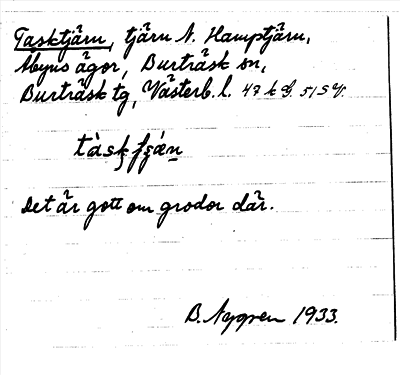 Tasktjärn, tjärn N. Hamptjärn,
Åbyns ägor, Burträsk sn,
Burträsk tg, Västerb. l. 47 k S. 51 S V.
Det är gott om grodor där.
B. Nygren 1933.